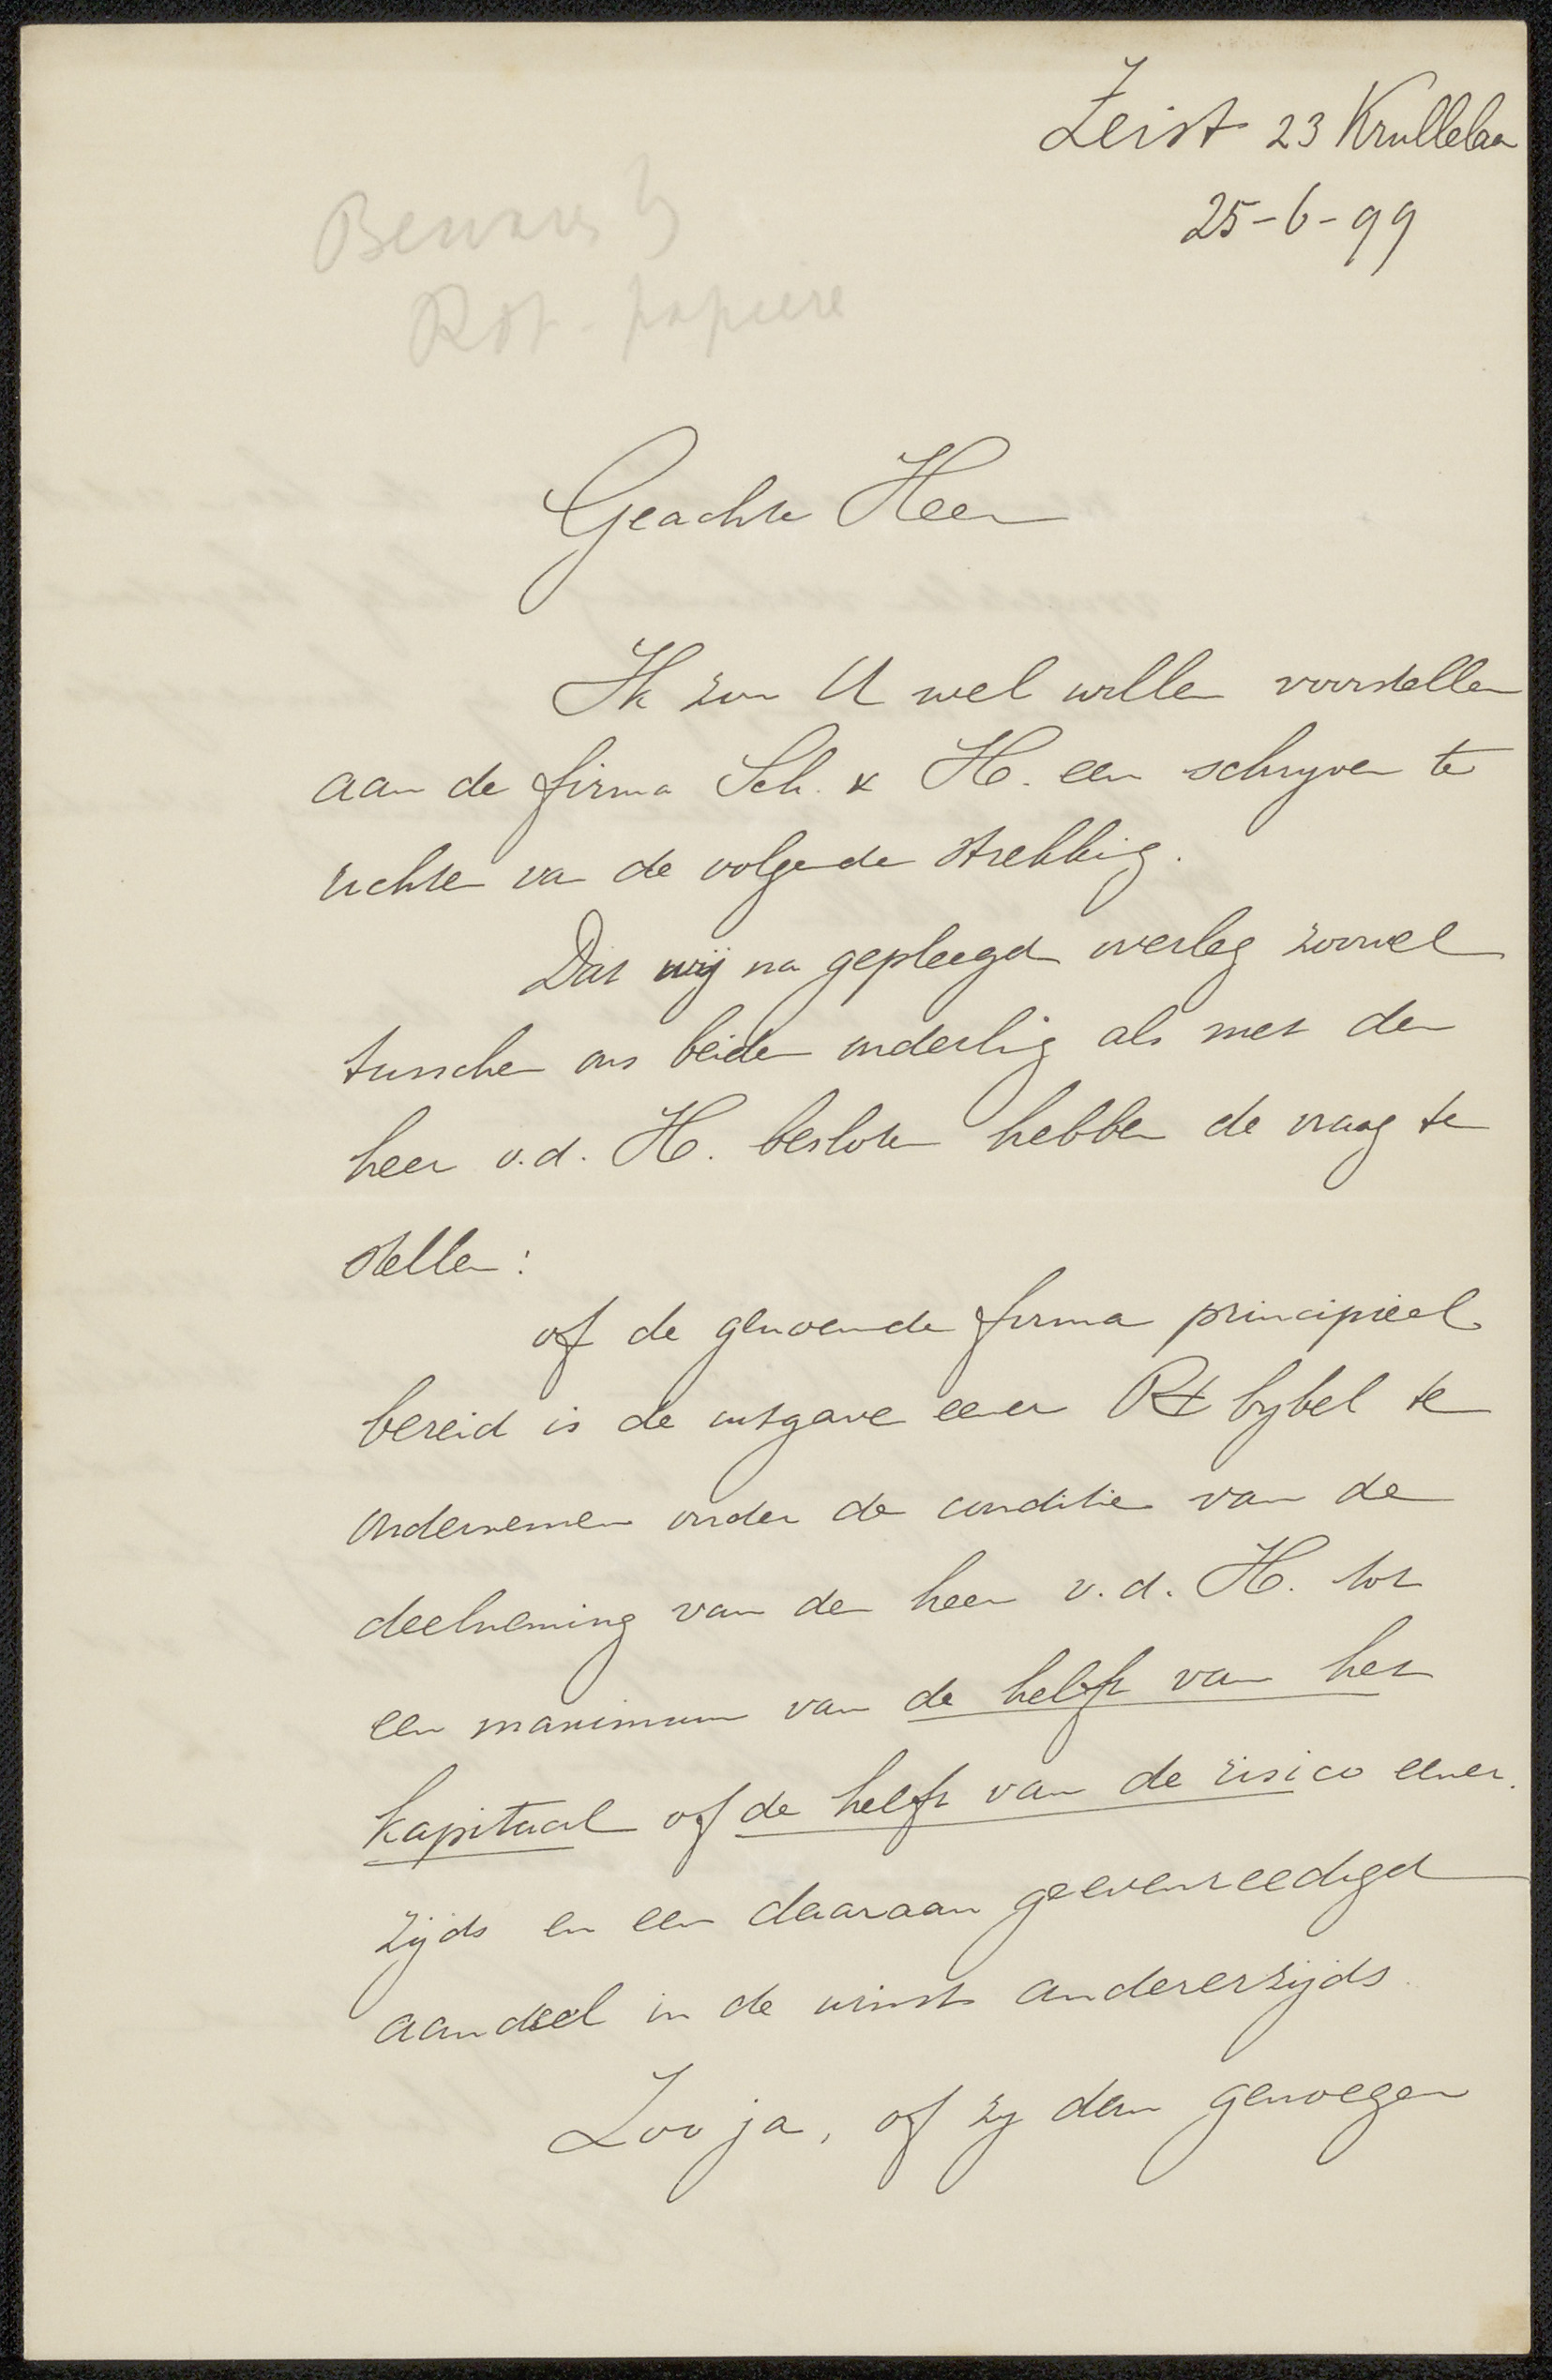 Zeist 23 Krullelaan
25-6-99
Bewaar bij
Rst. papiere
Geachte Heer
Ik zou U wel willen voorstellen
aan de firma Sch. & H. een schrijven te
richten van de volgende strekking.
Dat wij na gepleegd overleg zoowel
tusschen ons beiden onderling als met den
heer v.d. H. besloten hebben de vraag te
stellen:
of de genoemde firma principieel
bereid is de uitgave eener bybel te
ondernemen onder de conditie van de
deelneming van den heer v.d. H. tot
een maximum van de helft van het
kapitaal of de helft van de risico eener
zijds en een daaraan geevenreedigd
aandeel in de winst andererzijds.
Zoo ja, of zy dan genoegen